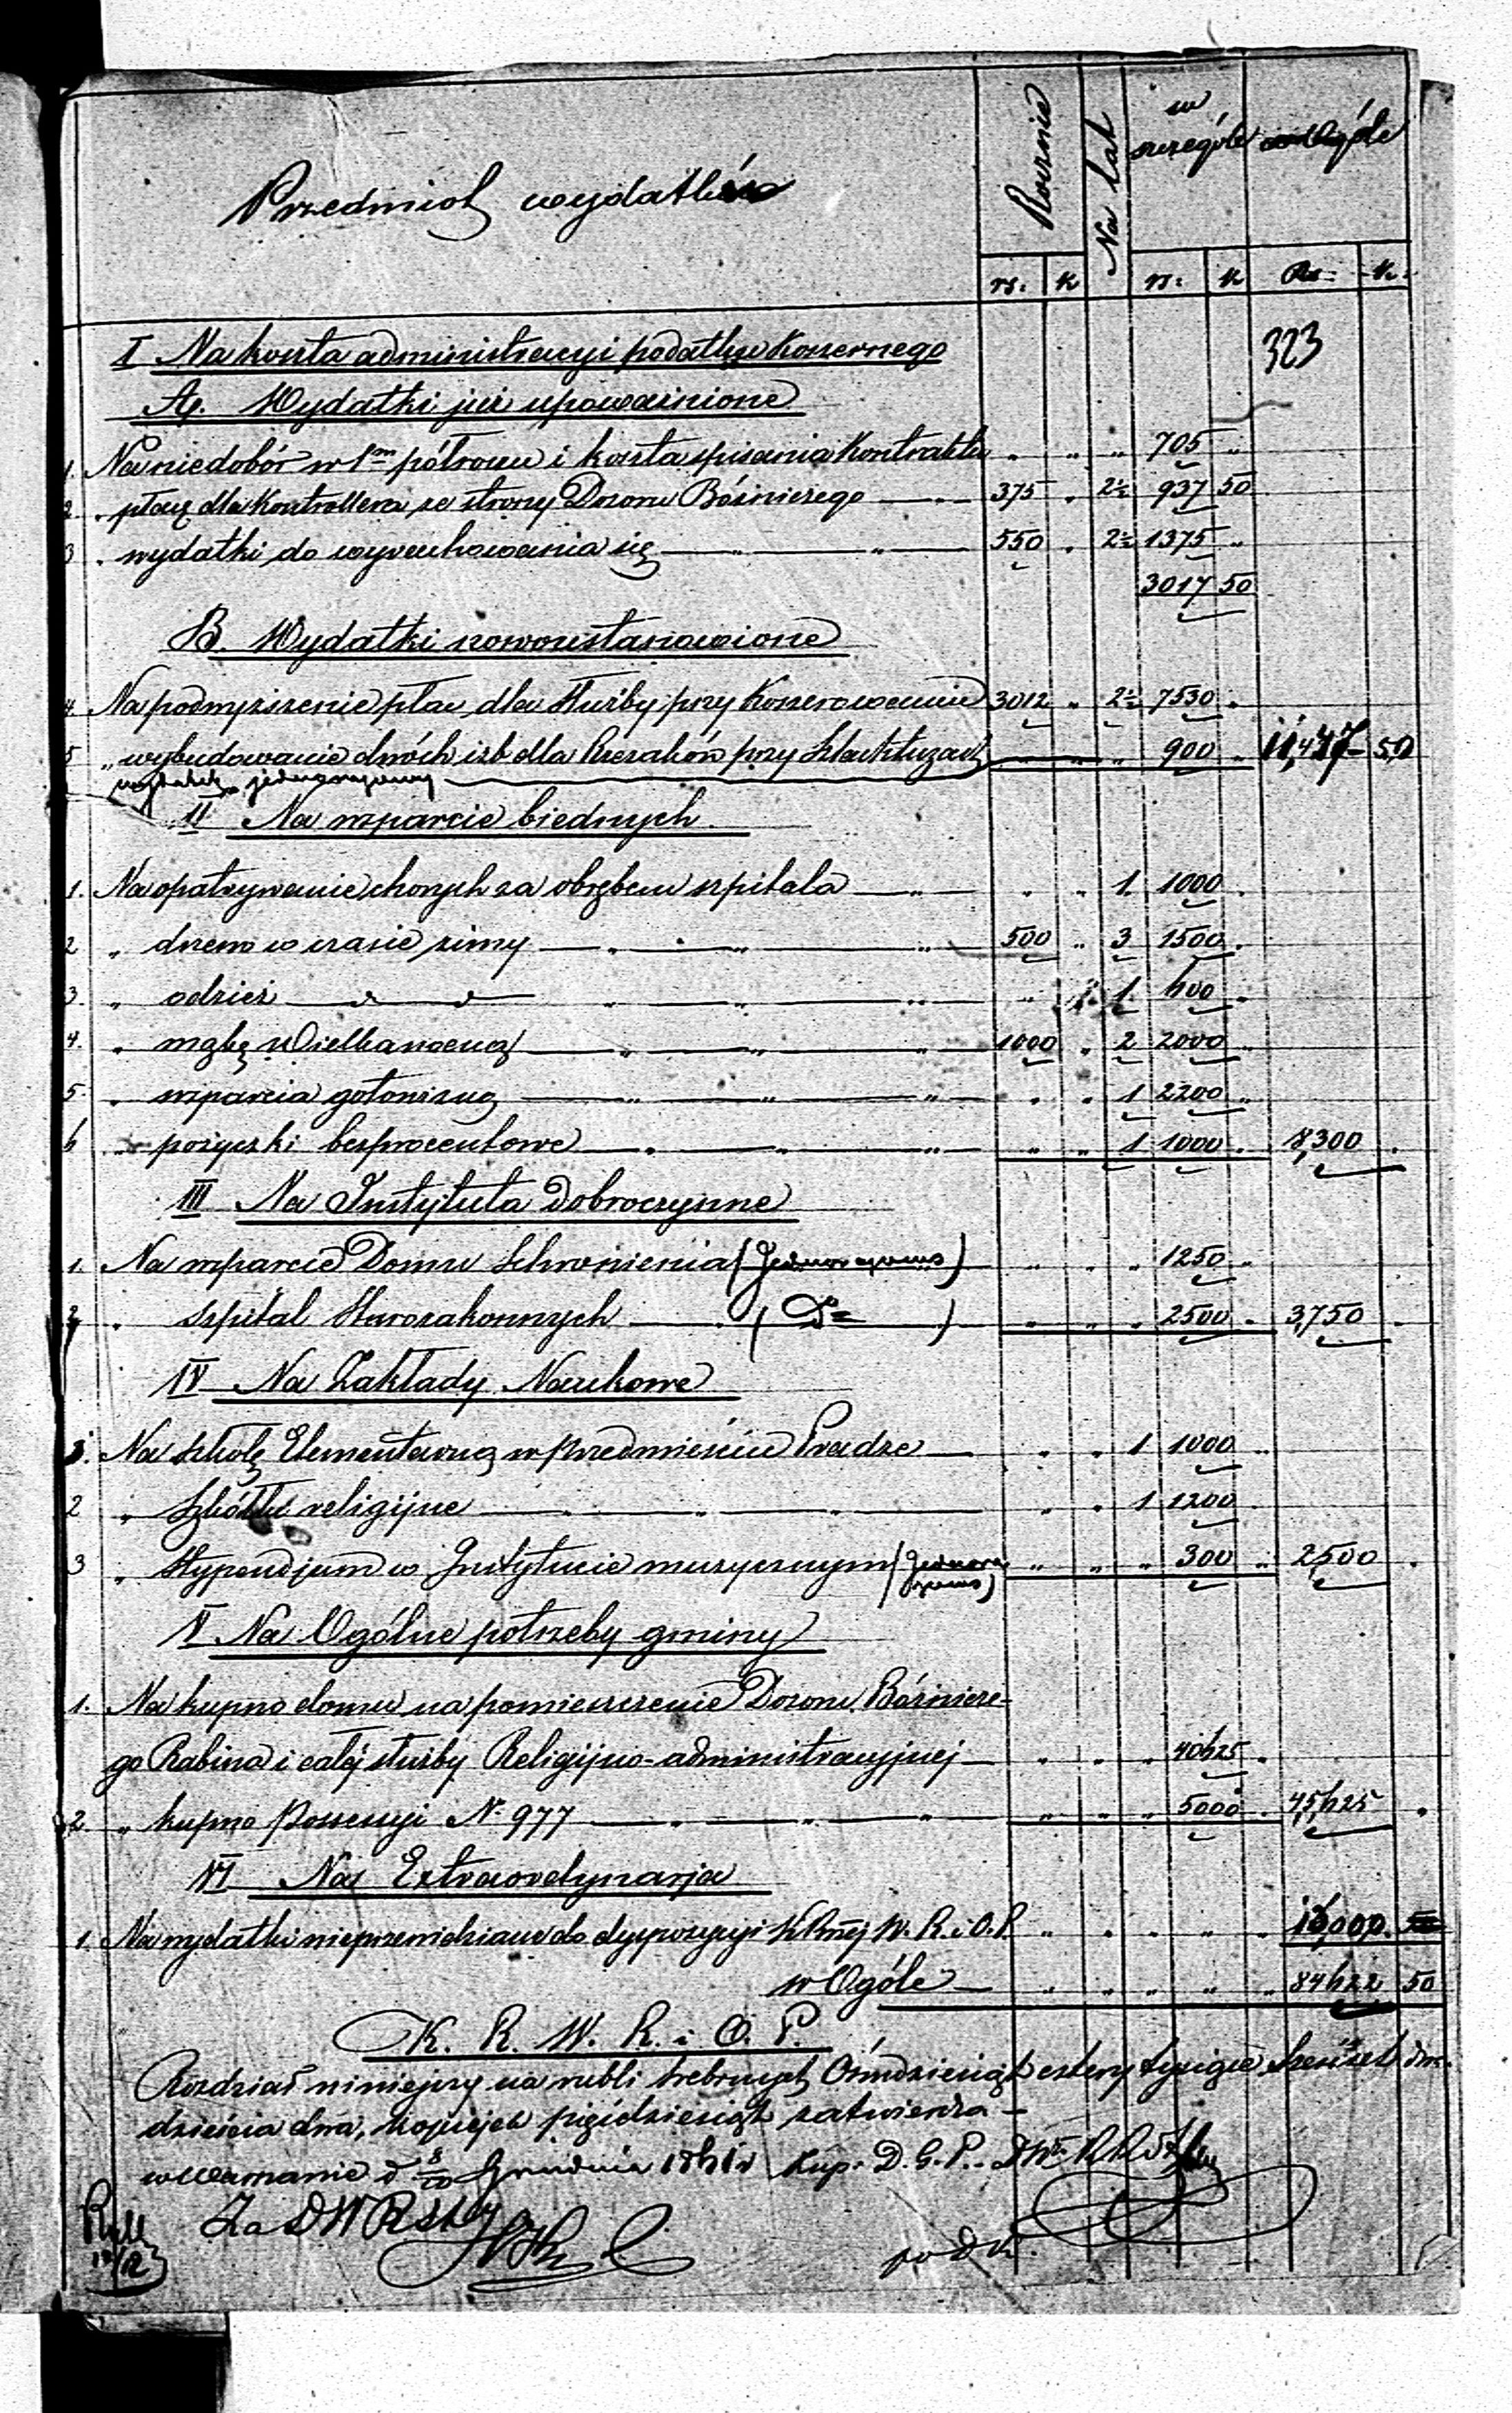 Przedmiot wydatków Rocznie Na lat w szczególe w Ogóle
rs. k rs. k Rs. k.
323
I Na koszta administracyi podatku Koszernego
A. Wydatki już upoważnione
1. Na niedobór w 1m półroczu i koszta spisania Kontraktu " " " 705 "
2 " płacę dla Kontrollera ze strony Dozoru Bóżniczego 375 " 2½ 937 50
3 " wydatki do wyrachowania się 550 " 2½ 1375 "
3017 50
B. Wydatki nowoustanowione
4. Na podwyższenie płac dla służby przy Koszerowaniu 3012 " 2½ 7530 "
5 " wybudowanie dwóch izb dla Rzezaków przy Szlachtuzach " " " 900 " 11,447 50
wydatek jednorazowy
II Na wsparcie biednych
1. Na opatrywanie chorych za obrębem szpitala " " 1. 1000 "
2 " drzewo w czasie zimy 500 " 3 1500 "
3. " odzież " " 1 600 "
4. " mąkę Wielkanocną 1000 " 2 2000 "
5. " wsparcia gotowizną " " 1 2200 "
6 " pożyczki bezprocentowe " " 1 1000 " 8,300 "
III Na Instytuta Dobroczynne
1. Na wsparcie Domu Schronienia (Jednorazowo) " " " 1250 "
2 " szpital Starozakonnych (Do) " " " 2500 " 3,750 "
IV Na Zakłady Naukowe
1. Na szkołę Elementarną w przedmieściu Pradze " " 1 1000 "
2 " Szkółki religijne " " 1 1200 "
3 " stypendjum w Instytucie muzycznym (Jednorazowo) " " " 300 " 2,500 "
V Na Ogólne potrzeby gminy
1. Na kupno domu na pomieszczenie Dozoru Bóżnicze-
go Rabina i całej służby Religijno-administracyjnej " " " 40625 "
2. " kupno Possessyi No 977 " " " 5000 " 45,625 "
VI Na Extraordynarja
1. Na wydatki nieprzewidziane do dyspozycyi K Rząj W. R. i O. P. " " " " " 13,000.
w Ogóle " " " " " 84622 50
K. R. W. R. i O. P.
Rozdział niniejszy na rubli srebrnych Ośmdziesiąt cztery tysiące sześćset dwa-
dzieścia dwa, kopiejek pięćdziesiąt zatwierdza
w Warszawie d 8/20 Grudnia 1861 r. Kup. D. G. P.
Za DW